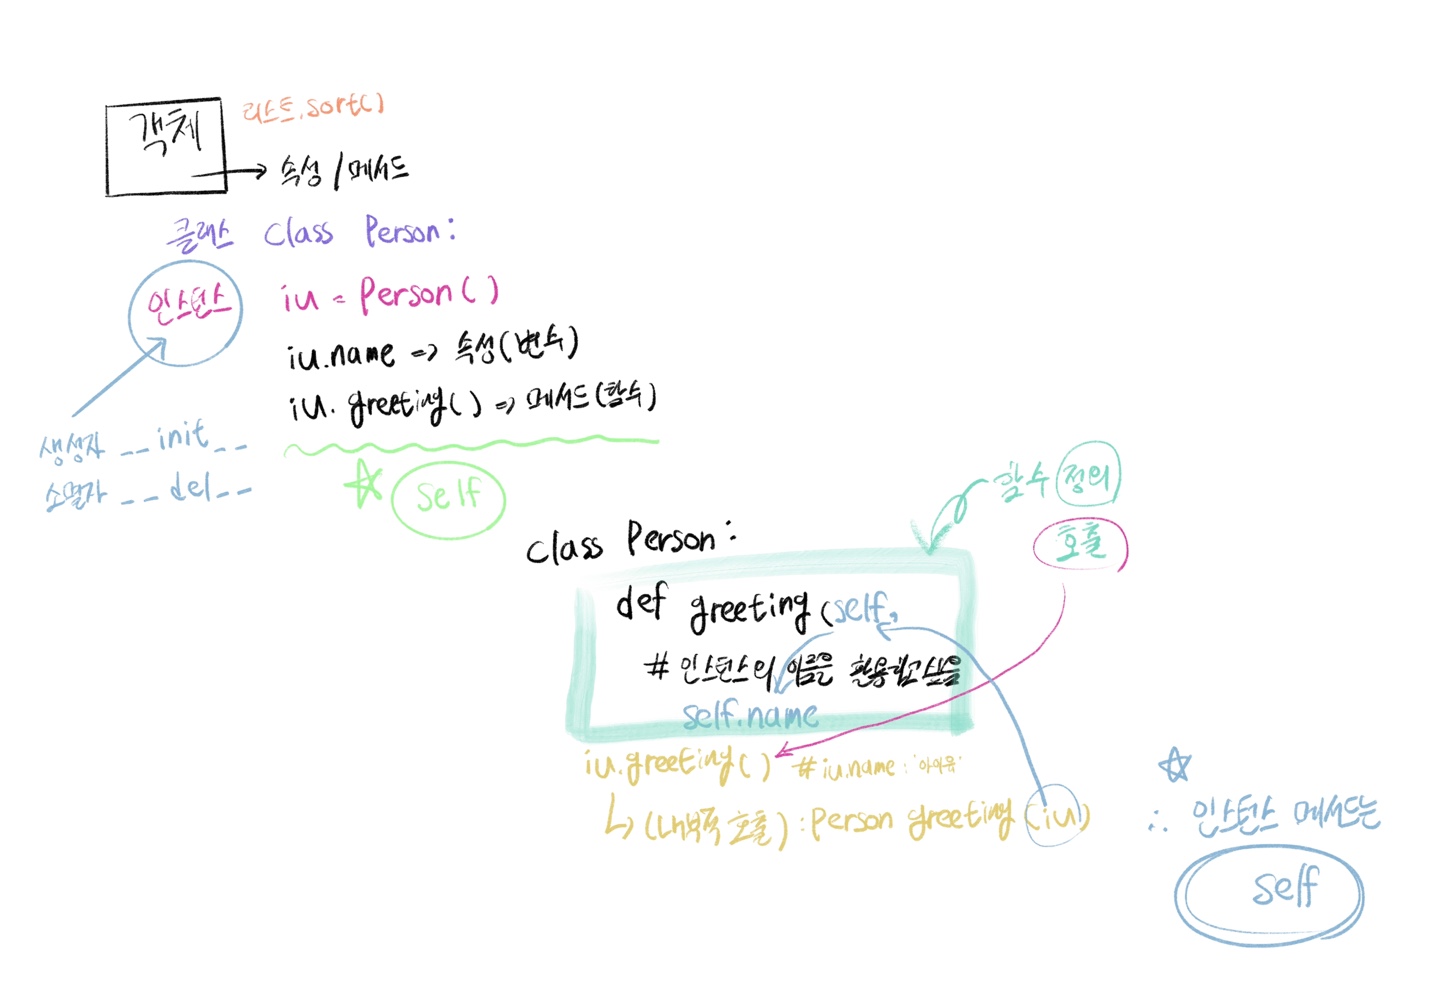 객체
리스트.sort()
속성/메서드
클래스 class Person:
인스턴스 iu = Person()
iu.name => 속성(변수)
iu.greeting() => 메서드(함수)
생성자 __init__
소멸자 __del__
self
함수 정의
호출
class Person:
def greeting(self,
# 인스턴스의 이름은 활용하고싶음
self.name
iu.greeting() # iu.name : '아이유'
(내부적 호출) : Person greeting (iu)
∴ 인스턴스 메서드는
self